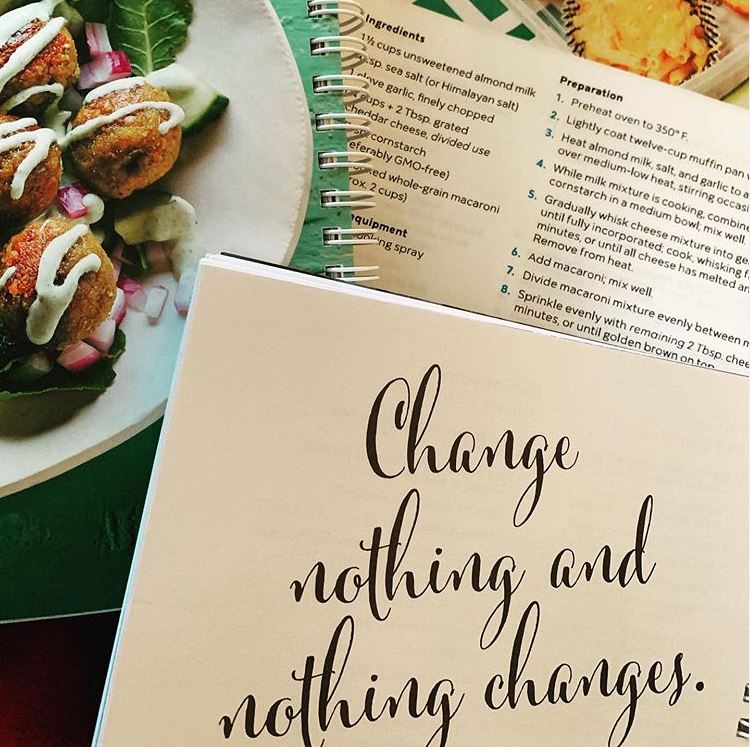 Ingredients
1½ cups unsweetened almond milk
sp. sea salt (or Himalayan salt)
clove garlic, finely chopped
cups + 2 Tbsp. grated
cheddar cheese, divided use
cornstarch
eferably GMO-free)
whole-grain macaroni
rox. 2 cups)
equipment
spray
Preparation
1. Preheat oven to 350° F.
2. Lightly coat twelve-cup muffin pan
3. Heat almond milk, salt, and garlic to a
over medium-low heat, stirring occasi
4. While milk mixture is cooking, combin
cornstarch in a medium bowl; mix well
5. Gradually whisk cheese mixture into
until fully incorporated; cook, whisking
minutes, or until all cheese has melted an
Remove from heat.
6. Add macaroni; mix well.
7. Divide macaroni mixture evenly between
8. Sprinkle evenly with remaining 2 Tbsp. chee
minutes, or until golden brown on top.
Change
nothing and
nothing changes.